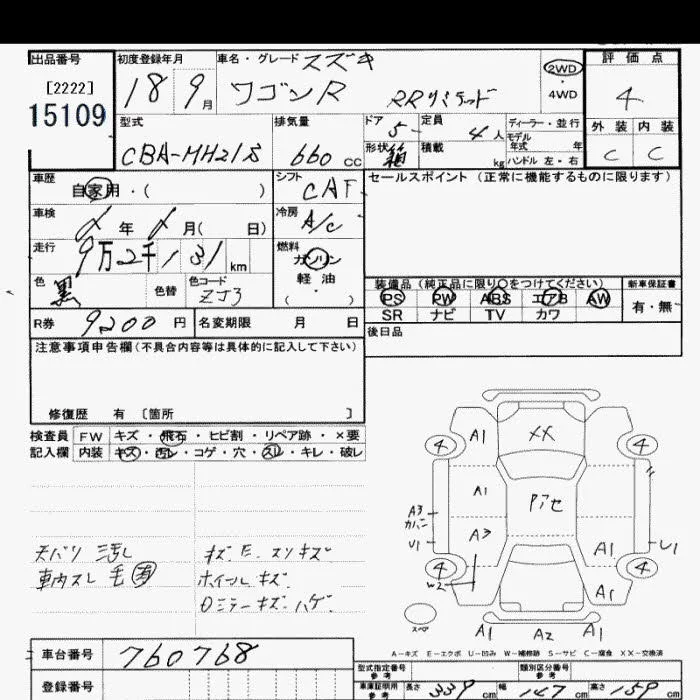 出品番号
[2222]
15109
初度登録年月
18 9月
車名・グレード スズキ
ワゴンR RRリミテッド
2WD
・
4WD
評価点
4
外装 内装
C C
型式
CBA-MH21S
排気量
660 cc
ドア 5
定員 4人
ディーラー・並行
モデル
年式 年
形状 箱
積載 kg
ハンドル 左・右
車歴
自家用・( )
シフト
CAT
セールスポイント(正常に機能するものに限ります)
車検
年 月( 日)
冷房
A/C
走行
9万2千131km
燃料
ガソリン
軽・油
( ・ )
色
黒
色替
色コード
ZJ3
装備品(純正品に限り○をつけてください)
PS PW ABS エアB AW
SR ナビ TV カワ
新車保証書
有・無
R券 9200円
名変期限 月 日
後日品
注意事項申告欄(不具合内容等は具体的に記入して下さい)
修復歴 有 〔箇所 〕
検査員 FW キズ・飛石・ヒビ割・リペア跡・×要
記入欄 内装 キズ・汚レ・コゲ・穴・スレ・キレ・破レ
天バリ 汚レ
車内スレ 毛 有
ホイール キズ
Dミラーキズ ハゲ
A1 XX
4 4
A1 Pアセ
A3
カバー
U1
A3
A1 U1
4 4
W2
A1
スペア
A1 A2 A1
A-キズ E-エクボ U-凹み W-補修跡 S-サビ C-腐食 XX-交換済
車台番号 760768
登録番号
型式指定番号
参考
類別区分番号
参考
車庫証明用
参考
長さ 339 cm
幅 147 cm
高さ 159 cm